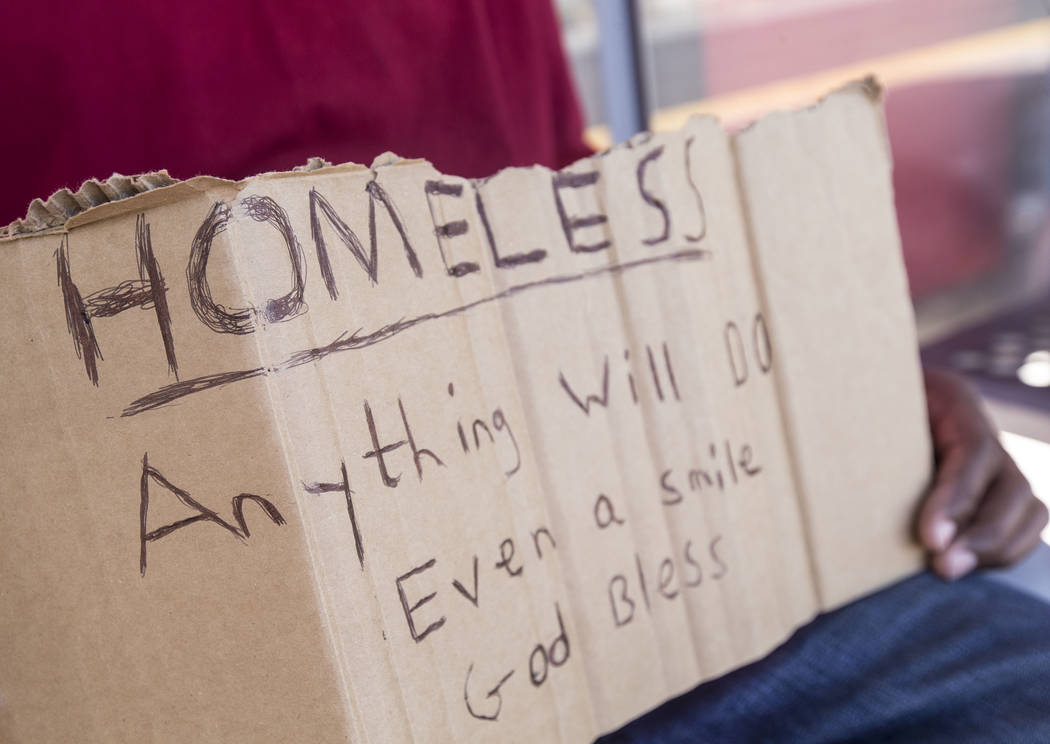 HOMELESS
Anything Will DO
Even a smile
God Bless